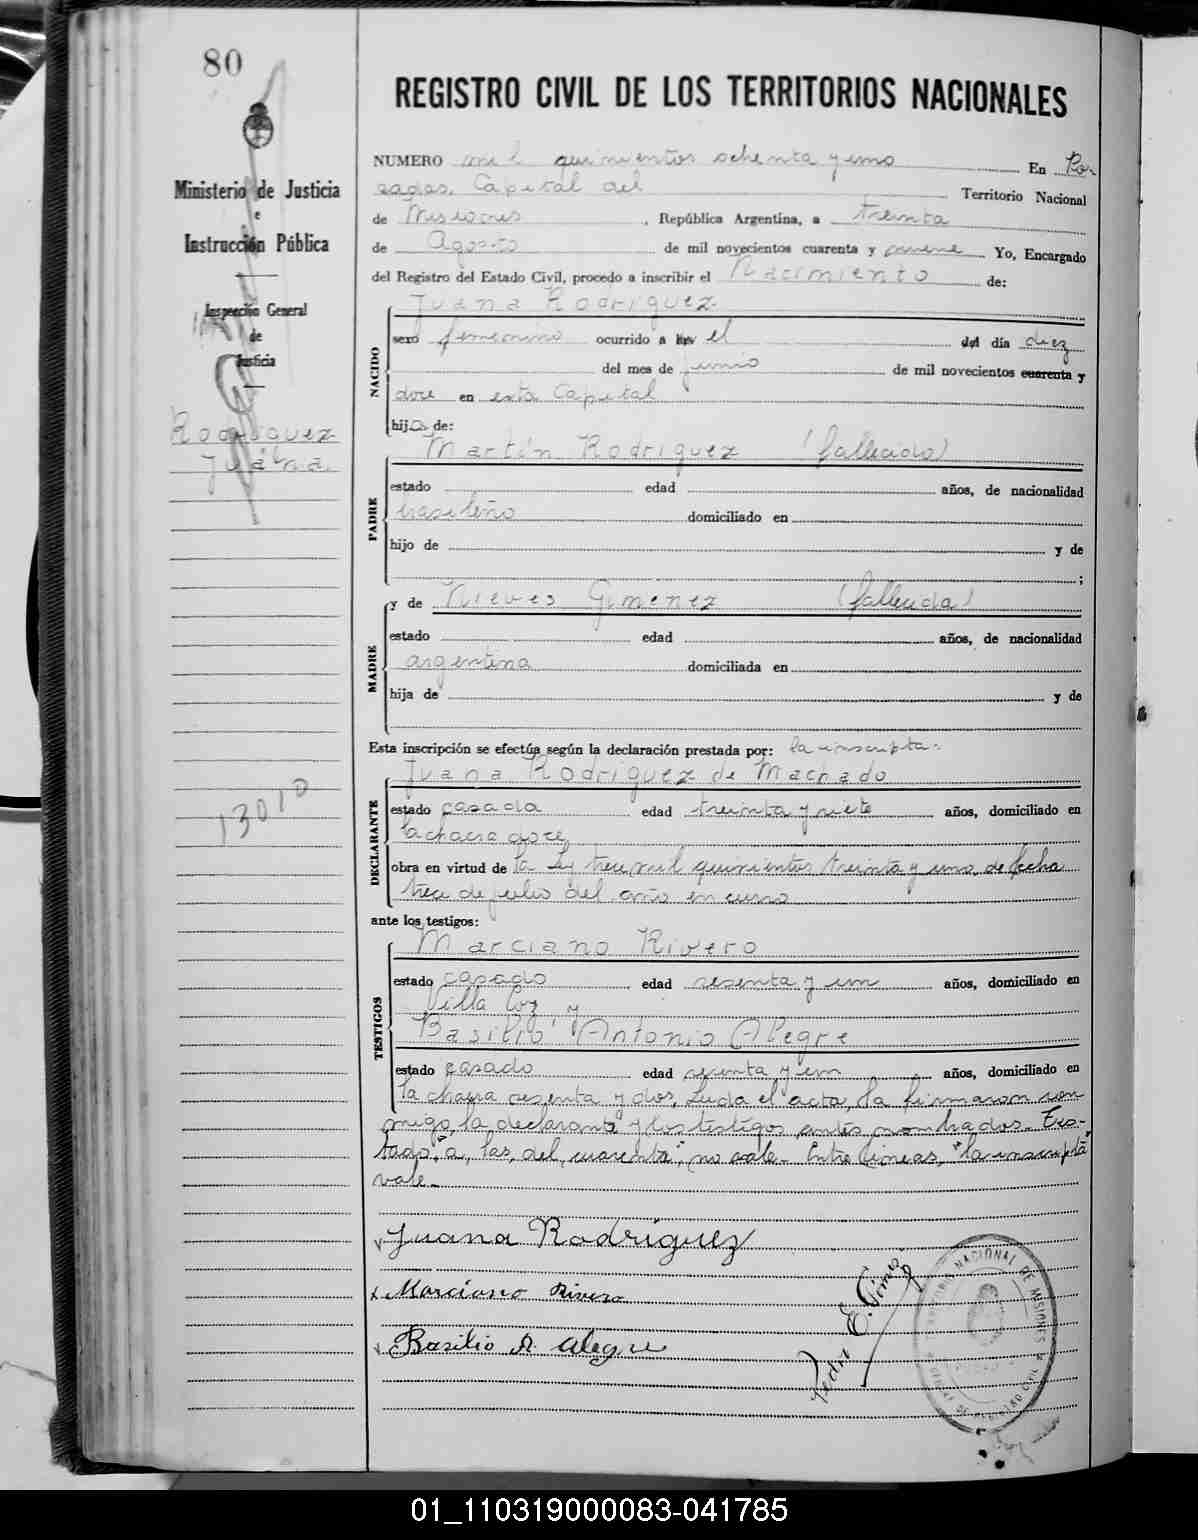 80
Ministerio de Justicia
e
Instrucción Pública
Inspección General
de
Justicia
Rodriguez
Juana
13010
REGISTRO CIVIL DE LOS TERRITORIOS NACIONALES
NUMERO mil quinientos ochenta y uno En Po-
sadas, Capital del Territorio Nacional
de Misiones, República Argentina, a treinta
de Agosto de mil novecientos cuarenta y nueve Yo, Encargado
del Registro del Estado Civil, procedo a inscribir el Nacimiento de:
NACIDO
Juana Rodriguez
sexo femenino ocurrido a las el del día diez
del mes de junio de mil novecientos cuarenta y
doce en esta Capital
hija de:
PADRE
Martín Rodriguez (fallecido)
estado edad años, de nacionalidad
brasileño domiciliado en
hijo de y de
;
MADRE
y de Nieves Gimenez (fallecida)
estado edad años, de nacionalidad
argentina domiciliada en
hija de y de
Esta inscripción se efectúa según la declaración prestada por: la inscripta.
DECLARANTE
Juana Rodriguez de Machado
estado casada edad treinta y siete años, domiciliado en
la chacra doce
obra en virtud de la Ley trece mil quinientos treinta y uno de fecha
trece de julio del año en curso
ante los testigos:
TESTIGOS
Marciano Rivero
estado casado edad sesenta y un años, domiciliado en
Villa y
Basilio Antonio Alegre
estado casado edad y un años, domiciliado en
la chacra sesenta y dos. Leida el acta, la firmaron con-
migo, la declarante y los testigos antes nombrados. Tes-
tado, "a, las, del, cuarenta", no vale. Entre lineas, "la inscripta"
vale.
Juana Rodríguez
Marciano Rivero
Basilio A. Alegre
Pedro E.
TERRITORIO NACIONAL DE MISIONES
REGISTRO CIVIL
01_110319000083-041785